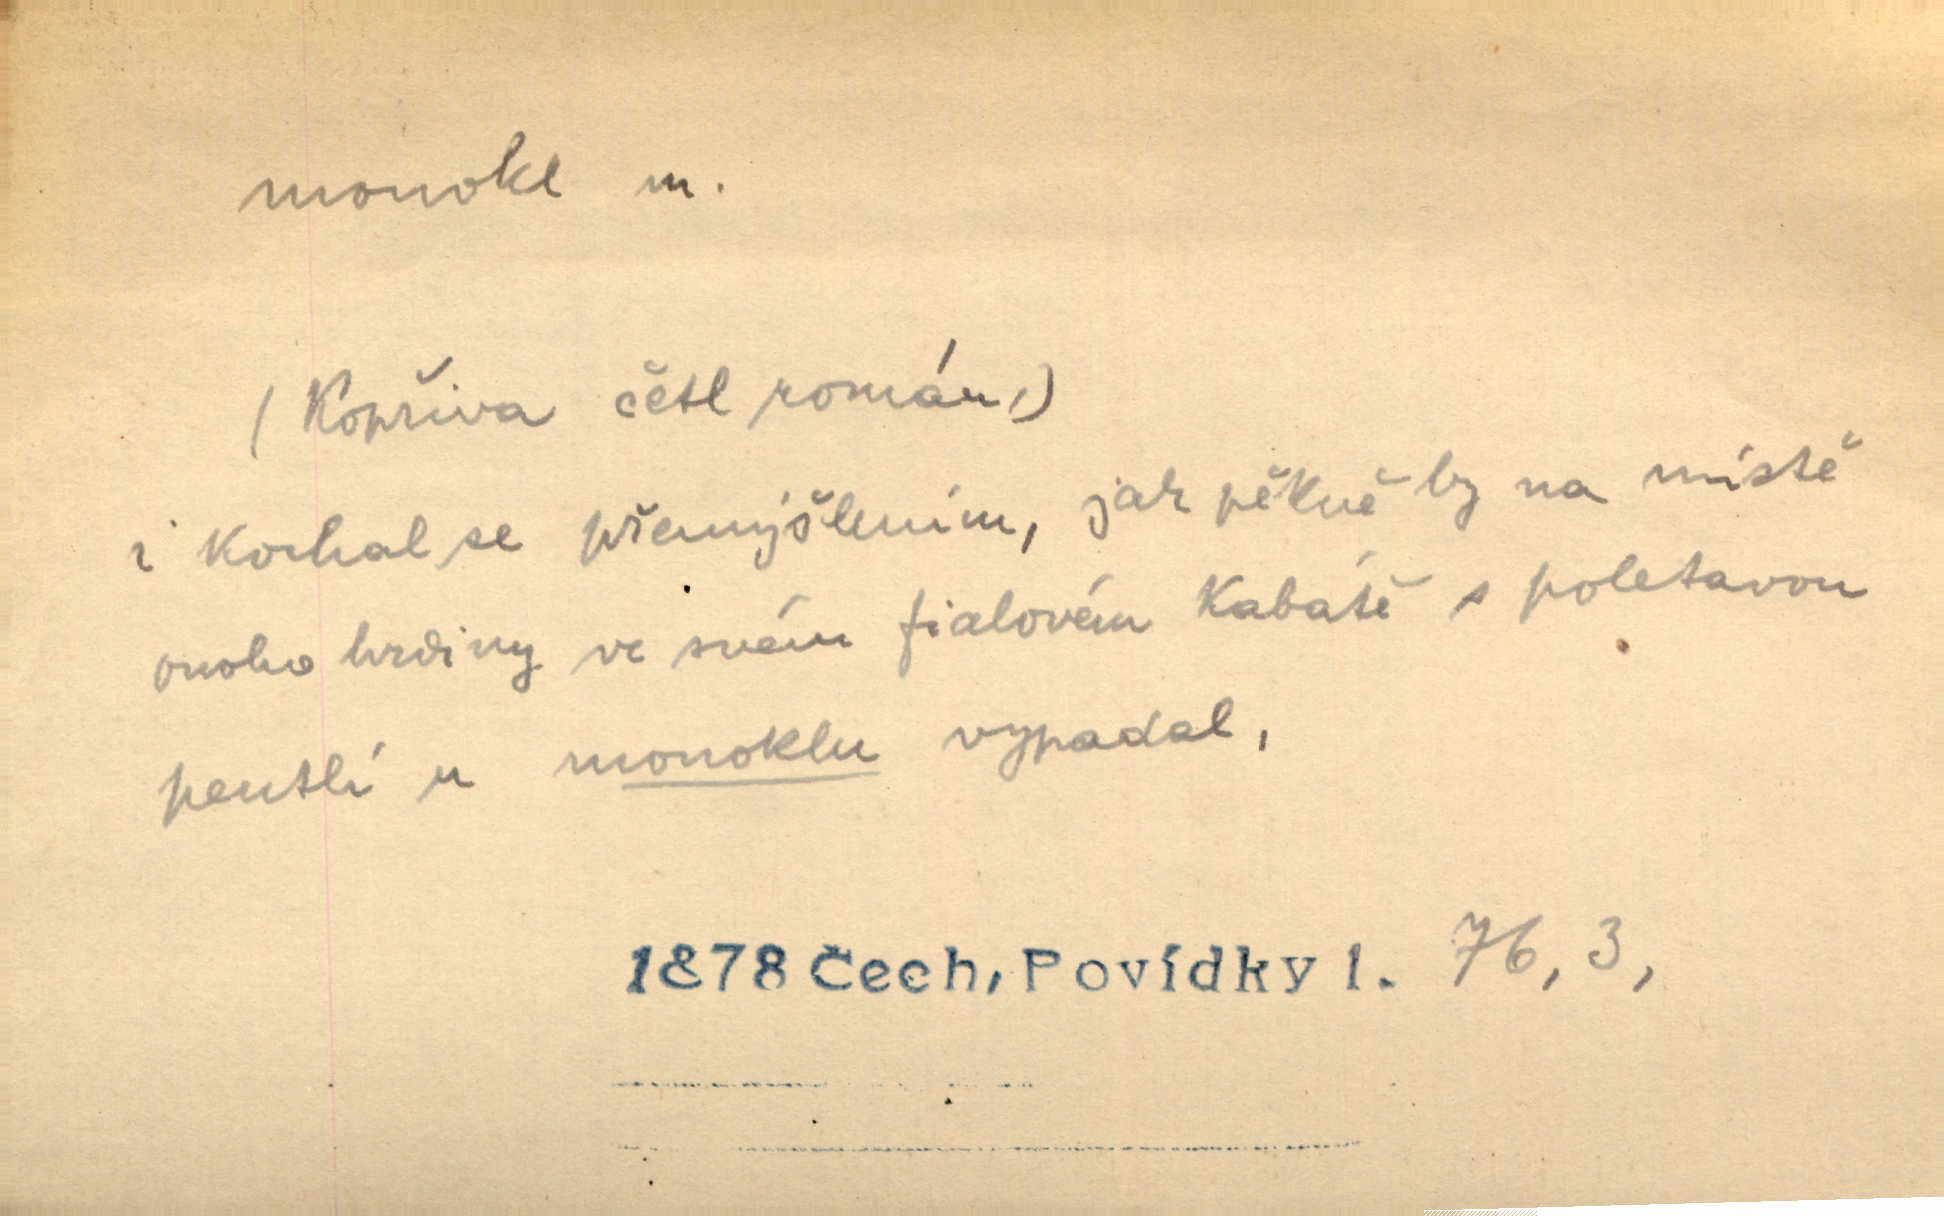 monokl m.
(Kopřiva četl román,)
i kochal se přemýšlením, jak pěkně by na místě
onoho hrdiny ve svém fialovém kabátě s poletavou
pentlí u monoklu vypadal,
1878 Čech, Povídky 1. 76, 3,